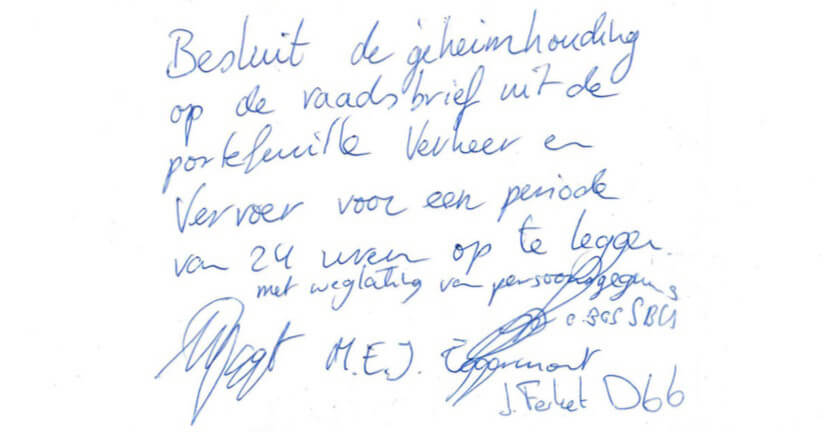 Besluit de geheimhouding
op de raadsbrief uit de
portefeuille Verkeer en
Vervoer voor een periode
van 24 uren op te leggen.
met weglating van persoonsgegevens
SBU
M.E.J. Eggermont
J. Ferket D66